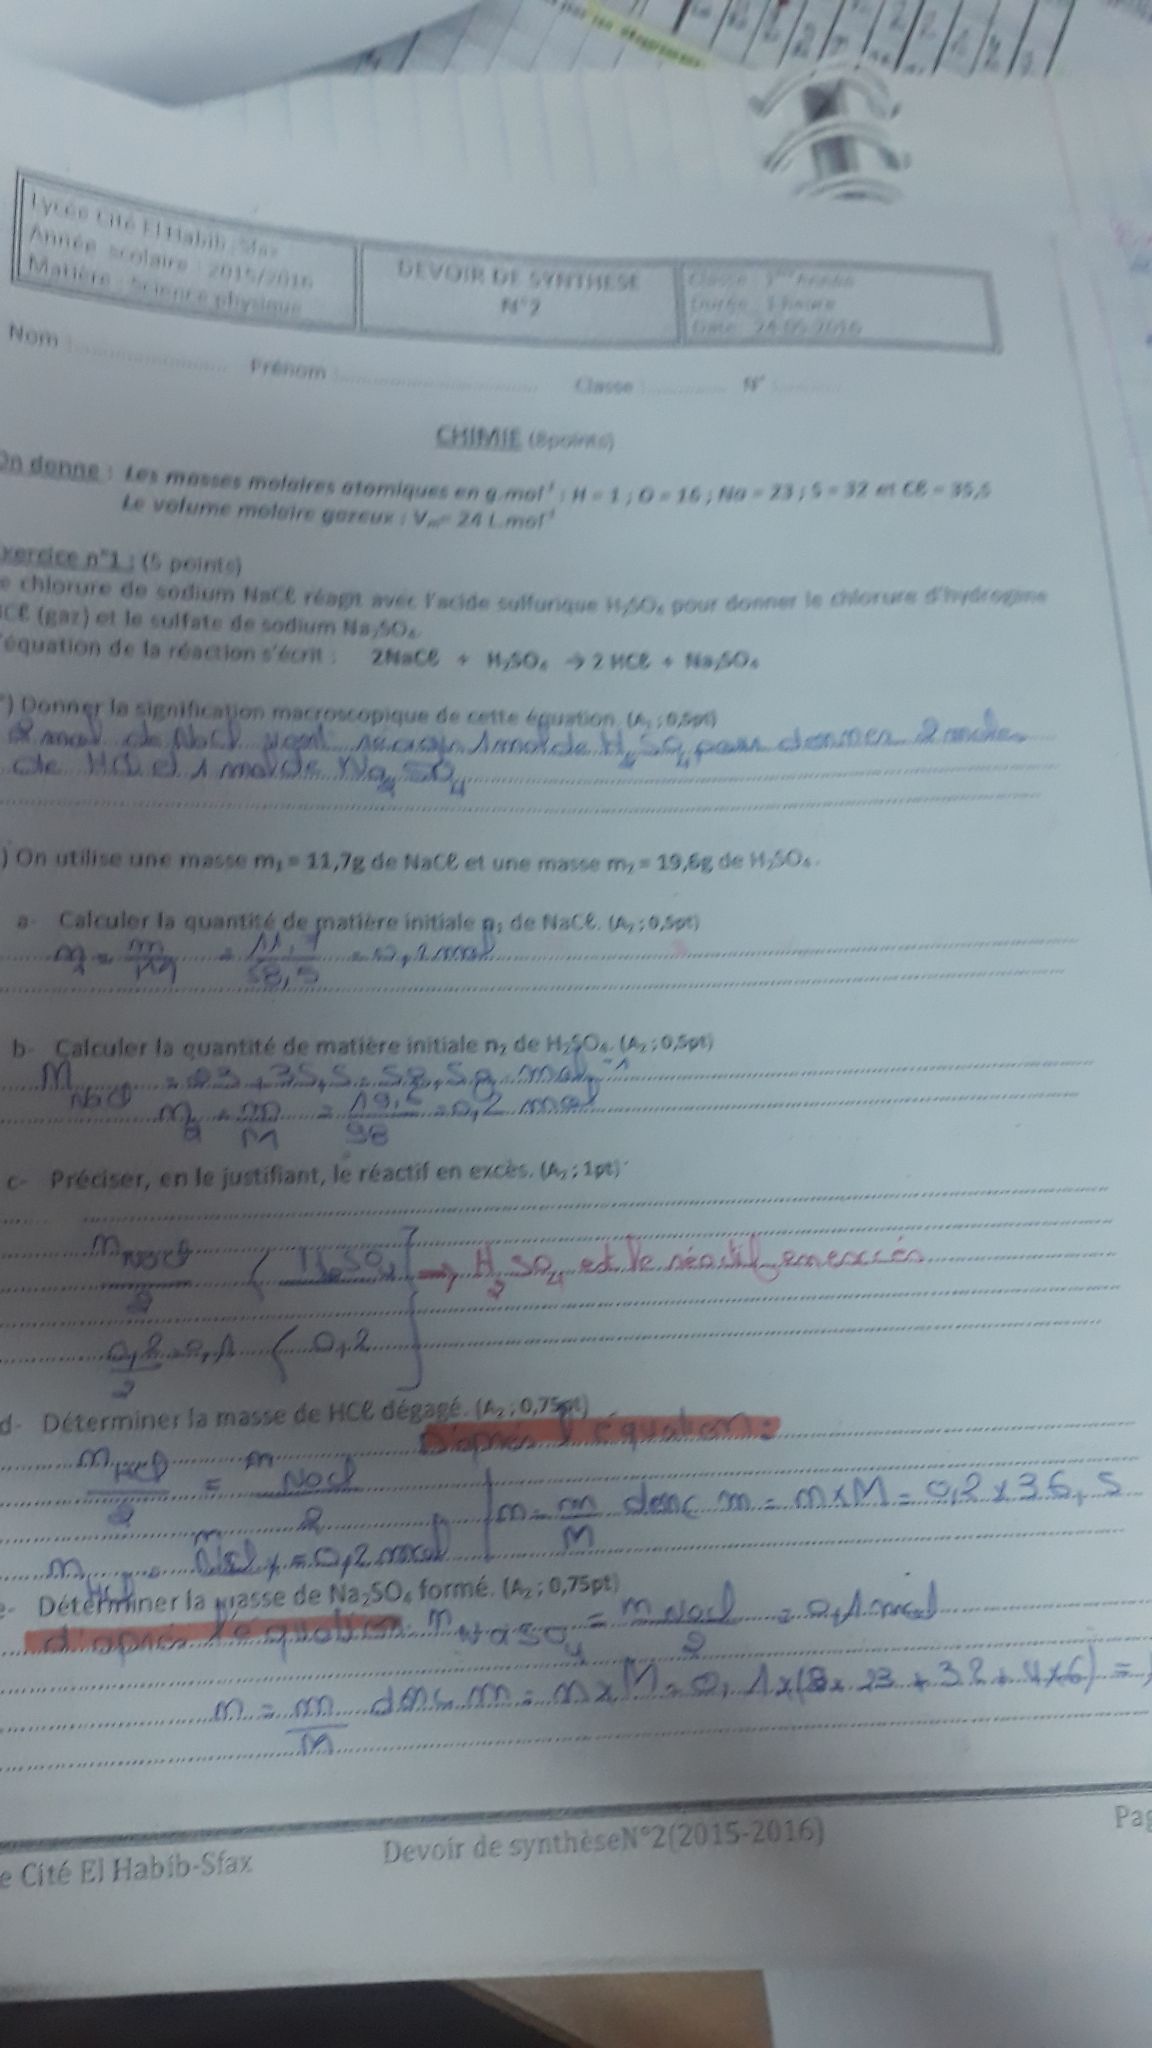 Lycée Cité El Habib Sfax
Année scolaire : 2015/2016
Matière : Science physique
DEVOIR DE SYNTHESE
N°2
Classe : Année
Durée : 1 heure
Date : 24-05-2016
Nom : Prénom : Classe : N°
CHIMIE (8points)
On donne : Les masses molaires atomiques en g.mol⁻¹ : H = 1 ; O = 16 ; Na = 23 ; S = 32 et Cℓ = 35,5
Le volume molaire gazeux : Vₘ = 24 L.mol⁻¹
xercice n°1 : (5 points)
e chlorure de sodium NaCℓ réagit avec l'acide sulfurique H₂SO₄ pour donner le chlorure d'hydrogène
HCℓ (gaz) et le sulfate de sodium Na₂SO₄.
'équation de la réaction s'écrit : 2NaCℓ + H₂SO₄ → 2 HCℓ + Na₂SO₄
°) Donner la signification macroscopique de cette équation. (A₁ ; 0,5pt)
2 mol de NaCl réagir 1 mol de H₂SO₄ pour donner 2 moles
de HCl et 1 mol de Na₂SO₄
) On utilise une masse m₁ = 11,7g de NaCℓ et une masse m₂ = 19,6g de H₂SO₄.
a- Calculer la quantité de matière initiale n₁ de NaCℓ. (A₂ ; 0,5pt)
n₁ = m/M = 11,7/58,5 = 0,2 mol
b- Calculer la quantité de matière initiale n₂ de H₂SO₄. (A₂ ; 0,5pt)
M NaCl = 23 + 35,5 = 58,5 g mol⁻¹
n₂ = m/M = 19,6/98 = 0,2 mol
c- Préciser, en le justifiant, le réactif en excès. (A₂ ; 1pt)
n NaCl/2 < H₂SO₄ → H₂SO₄ est le réactif en excès
0,2/2 = 0,1 < 0,2
d- Déterminer la masse de HCℓ dégagé. (A₂ ; 0,75pt)
D'après l'équation :
n HCl/2 = n NaCl/2
n = m/M donc m = n x M = 0,2 x 36,5
n HCl = n NaCl = 0,2 mol
e- Déterminer la masse de Na₂SO₄ formé. (A₂ ; 0,75pt)
d'après l'équation n Na₂SO₄ = n NaCl/2 = 0,1 mol
n = m/M donc m = n x M = 0,1 x (2 x 23 + 32 + 4 x 6) =
e Cité El Habib-Sfax
Devoir de synthèseN°2(2015-2016)
Pag